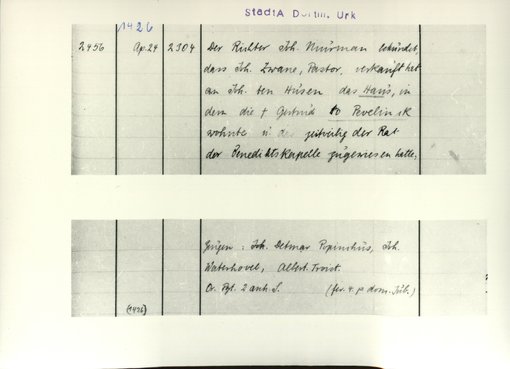 StadtA Dortm. Urk
1426
2456 Ap. 24 2304 Der Richter Joh. Muurman bekundet,
dass Joh. Zwane, Pastor, verkauft hat
an Joh. ten Hüsen das Haus, in
dem die † Gertrud to Pevelinck
wohnte u. das zeitweilig der Rat
der Benediktskapelle zugewiesen hatte.
Zeugen: Joh. Detmar Popinchus, Joh.
Waterhovel, Albert
Or. Pgt. 2 anh. S. (fer. 4. p. dom. Jub.)
(1426)